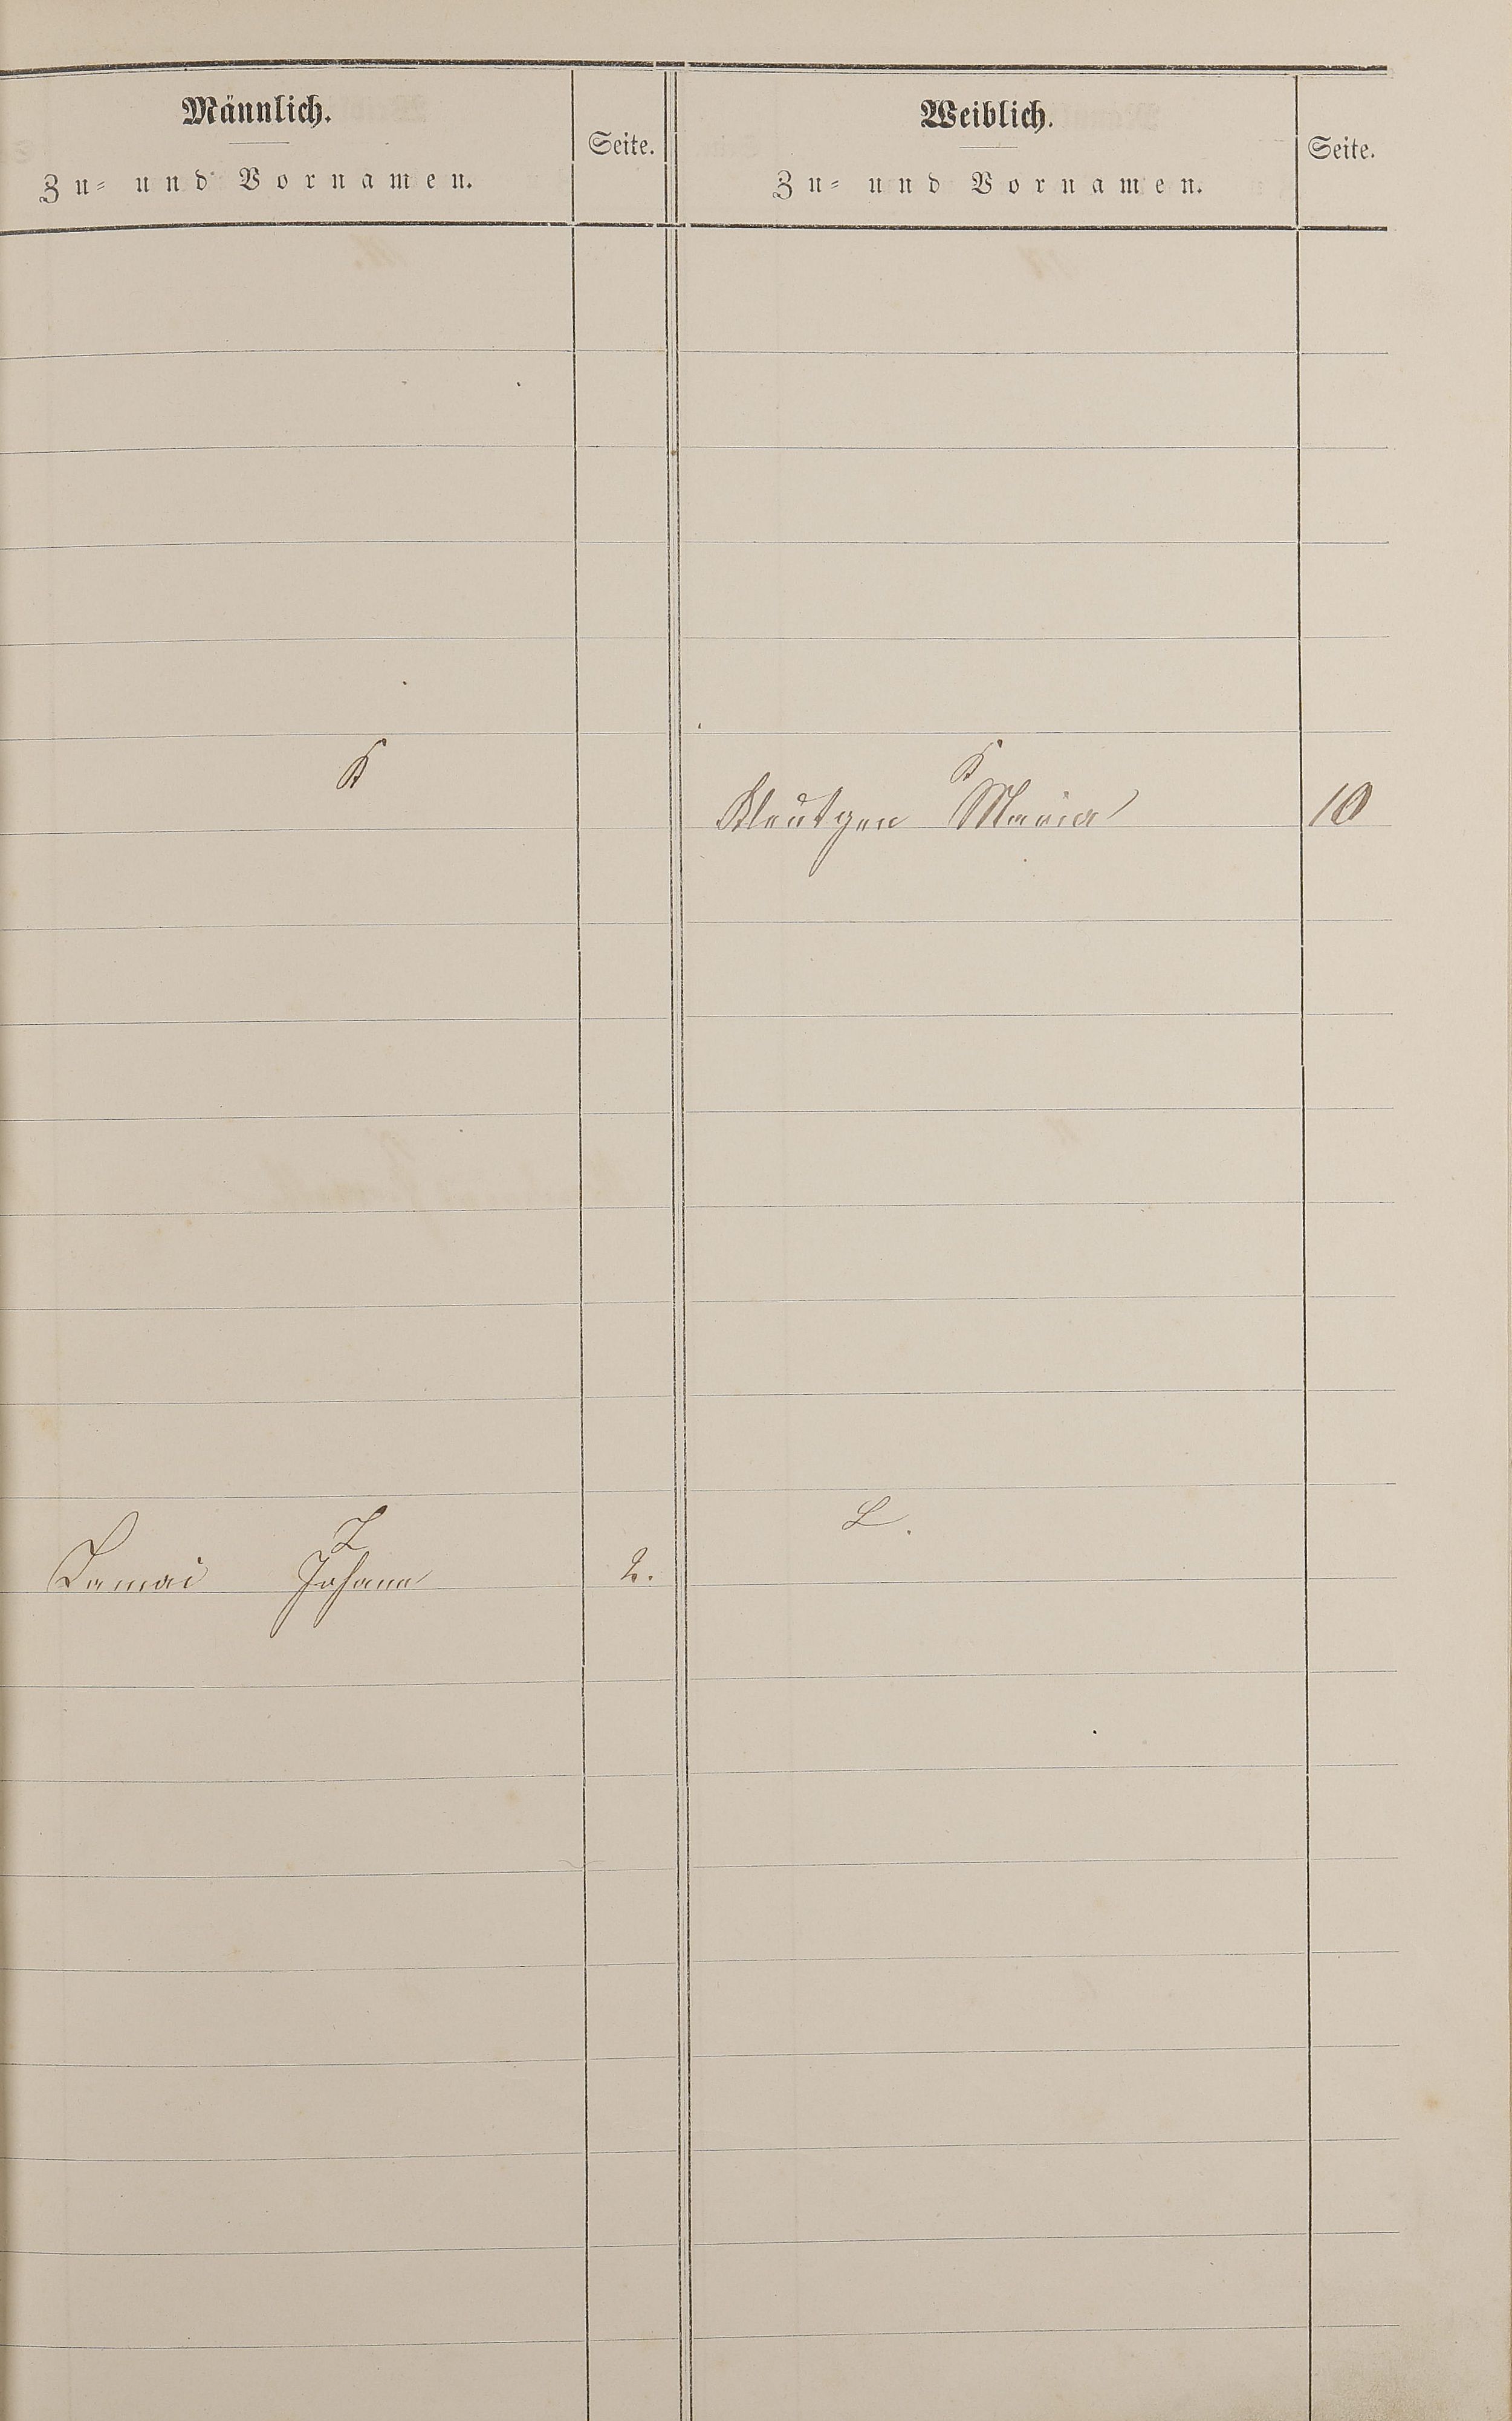 Männlich.
Zu- und Vornamen.
Seite.
Weiblich.
Zu- und Vornamen.
Seite.
K
K
Kleutgen Maria 10
L
L.
Lamai Johann 2.